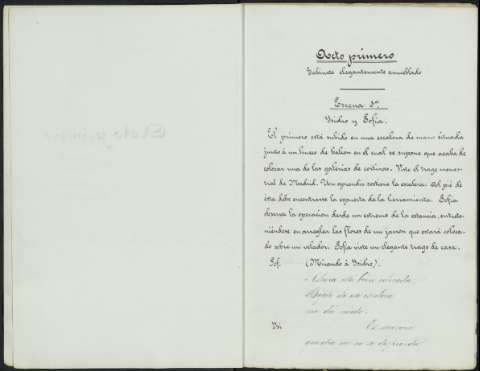 Acto primero
Gabinete elegantemente amueblado
Escena 1ª
Isidro y Sofía.
El primero está subido en una escalera de mano situada
junto á un hueco de balcon en el cual se supone que acaba de
colocar una de las galerías de cortinas. Viste el traje menes-
tral de Madrid. Un aprendiz sostiene la escalera. Al pié de
ésta debe encontrarse la espuerta de la herramienta. Sofía
observa la operacion desde un extremo de la estancia, entrete-
niéndose en arreglar las flores de un jarron que estará coloca-
do sobre un velador. Sofía viste un elegante traje de casa.
Sof. (Mirando á Isidro).
Ahora está bien
de esa escalera
me dá miedo.
Isi